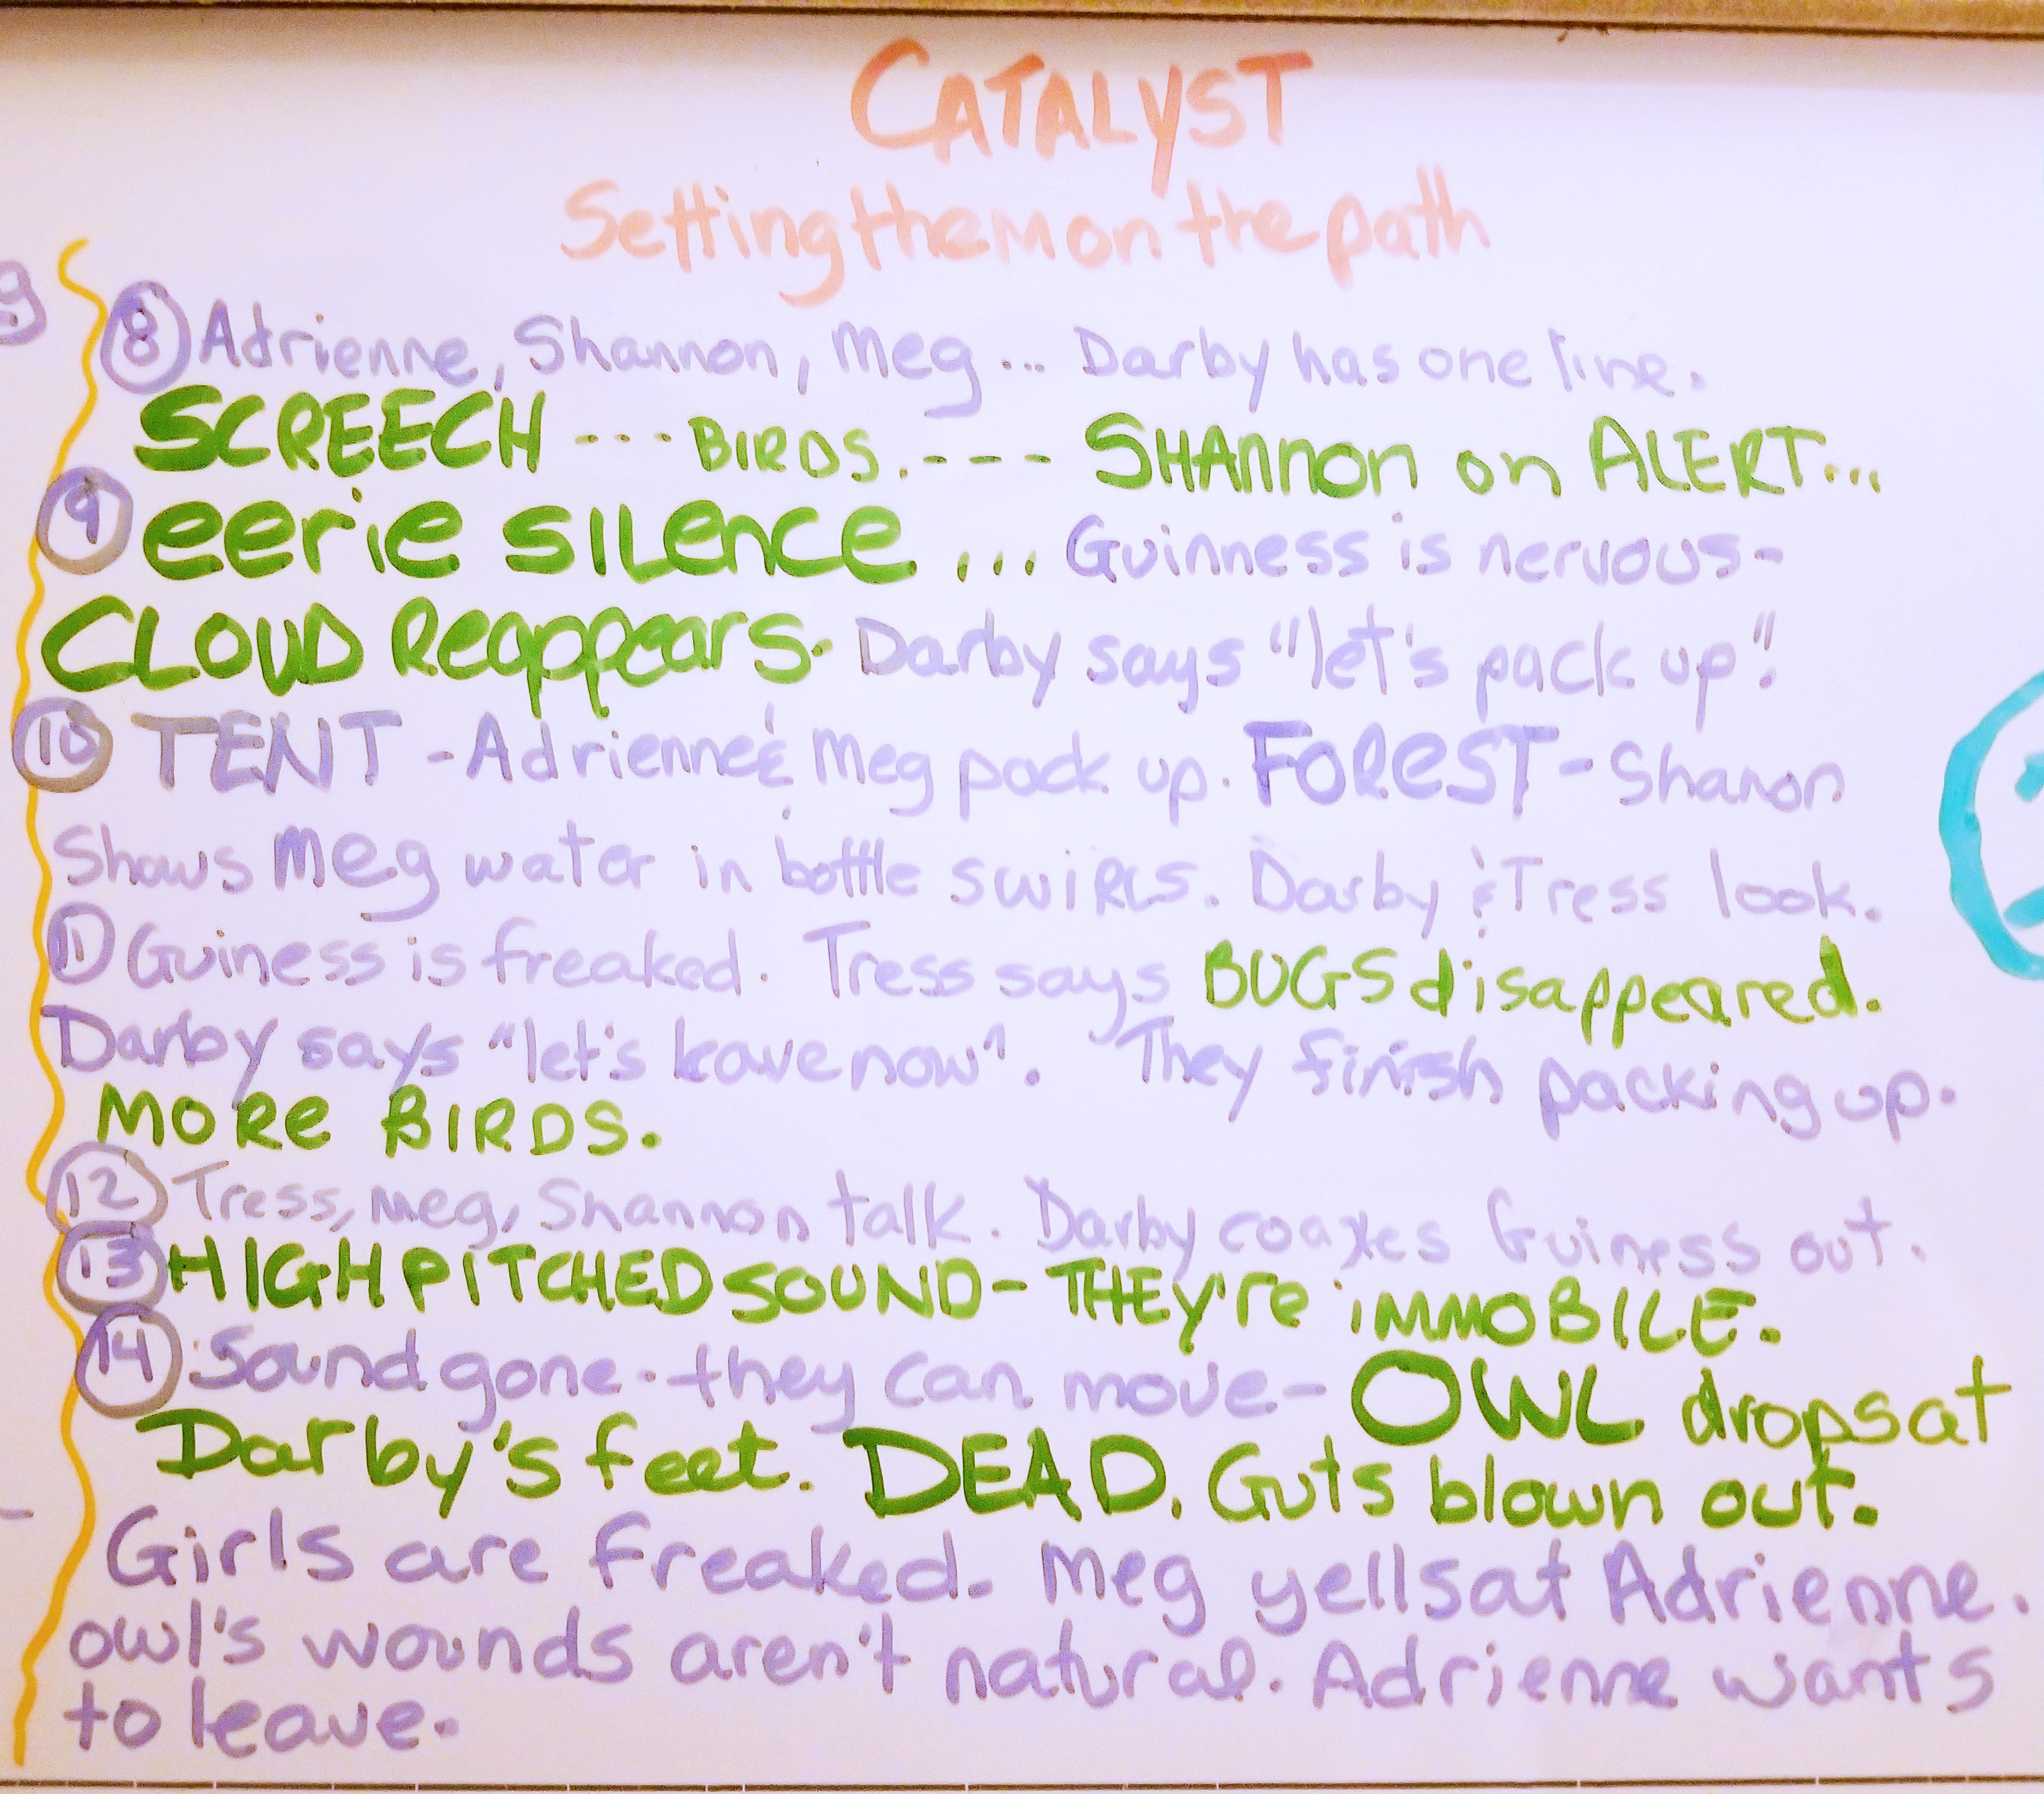 CATALYST
Setting them on the path
⑧ Adrienne, Shannon, Meg... Darby has one line.
SCREECH --- BIRDS. --- SHANNON on ALERT...
⑨ eerie SILENCE ... Guinness is nervous-
CLOUD Reappears. Darby says "let's pack up".
⑩ TENT - Adrienne & Meg pack up. FOREST - Shanon
Shows Meg water in bottle swirls. Darby & Tress look.
⑪ Guiness is freaked. Tress says BUGS disappeared.
Darby says "let's leave now". They finish packing up.
MORE BIRDS.
⑫ Tress, Meg, Shannon talk. Darby coaxes Guiness out.
⑬ HIGH PITCHED SOUND - THEY'RE IMMOBILE.
⑭ Sound gone - they can move - OWL drops at
Darby's feet. DEAD. Guts blown out.
Girls are freaked. Meg yells at Adrienne.
owl's wounds aren't natural. Adrienne wants
to leave.